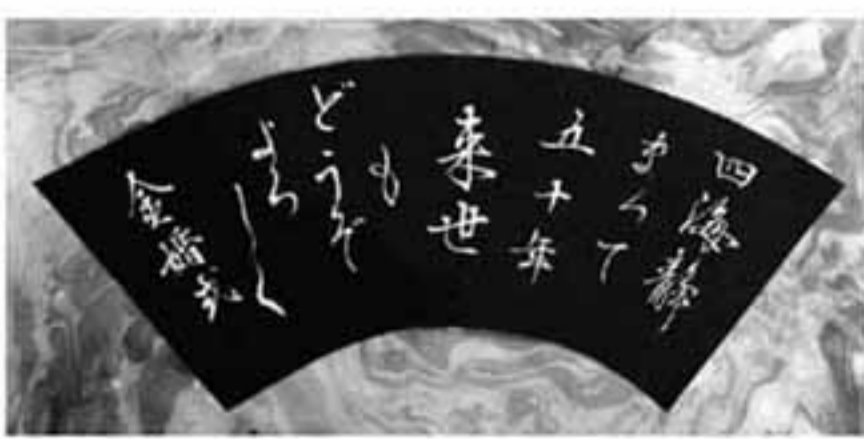 四海静
五十年
来世
も
どうぞ
よろしく
金婚式